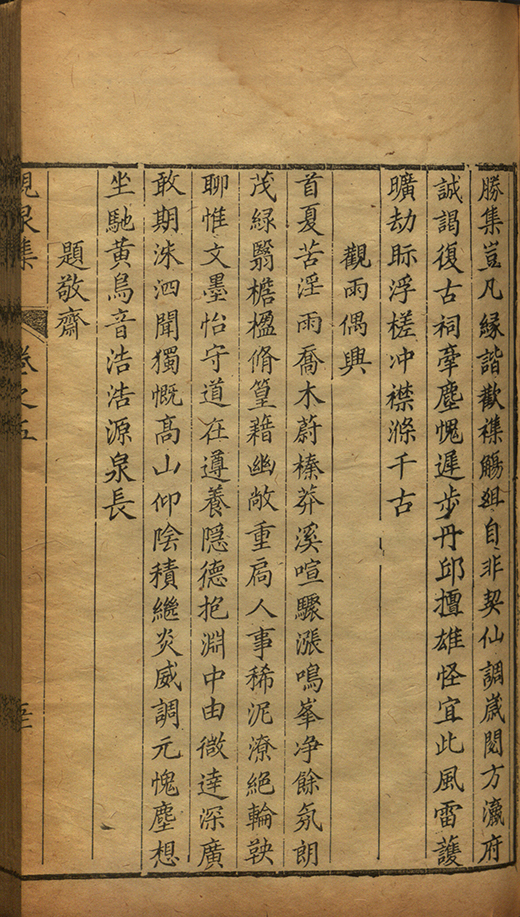 勝集豈凡緣諧歡襍觴俎自非契仙調歲閱方瀛府
誠謁復古祠牽塵愧遲步丹邱擅雄怪宜此風雷護
曠劫眎浮槎冲襟滌千古
觀雨偶興
首夏苦淫雨喬木蔚榛莽溪喧驟漲鳴峯净餘氛朗
茂緑翳檐楹脩篁藉幽敞重扄人事稀泥潦絕輪鞅
聊惟文墨怡守道在遵養隱德抱淵中由微達深廣
敢期洙泗聞獨慨髙山仰陰積繼炎威調元愧塵想
坐馳黃鳥音浩浩源泉長
題敬齋
峴泉集 卷之五